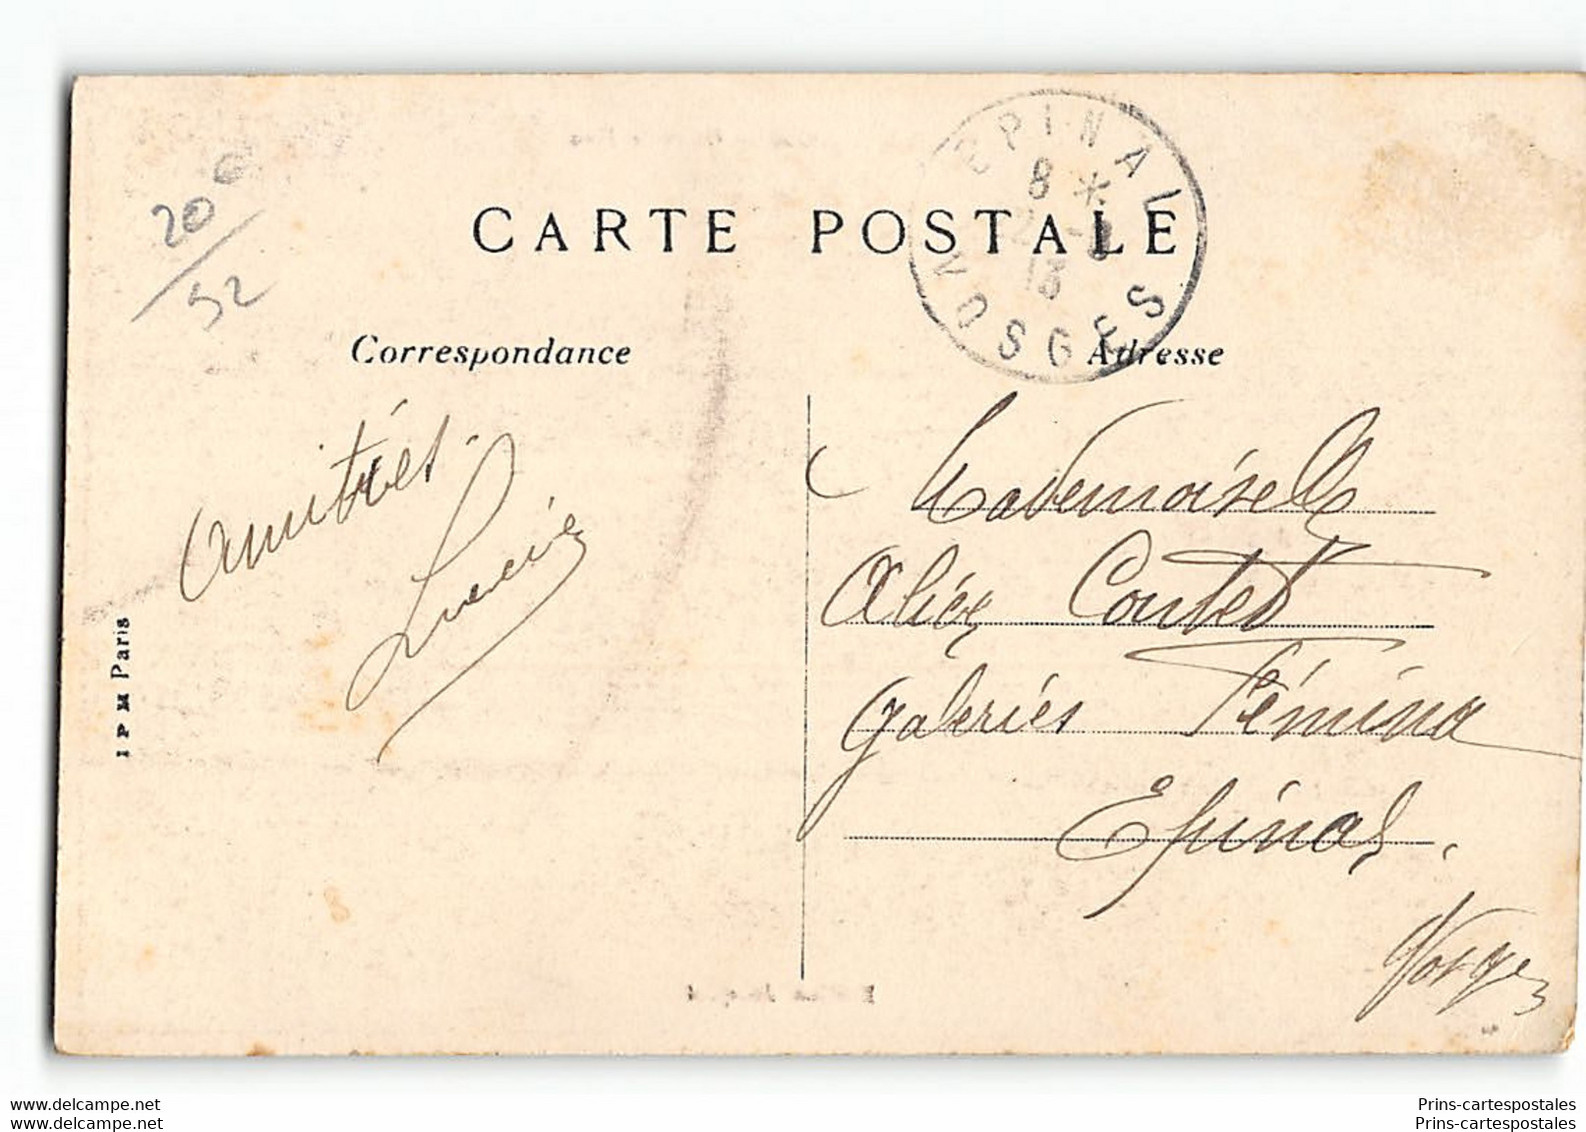 EPINAL
8 *
13
VOSGES
20
52
CARTE POSTALE
Correspondance
Adresse
Amitiés.
Lucie
Mademoiselle
Alice Coutet
Galeries Fémina
Epinal.
Vosges
I P M Paris
www.delcampe.net
www.delcampe.net
Prins-cartespostales
Prins-cartespostales